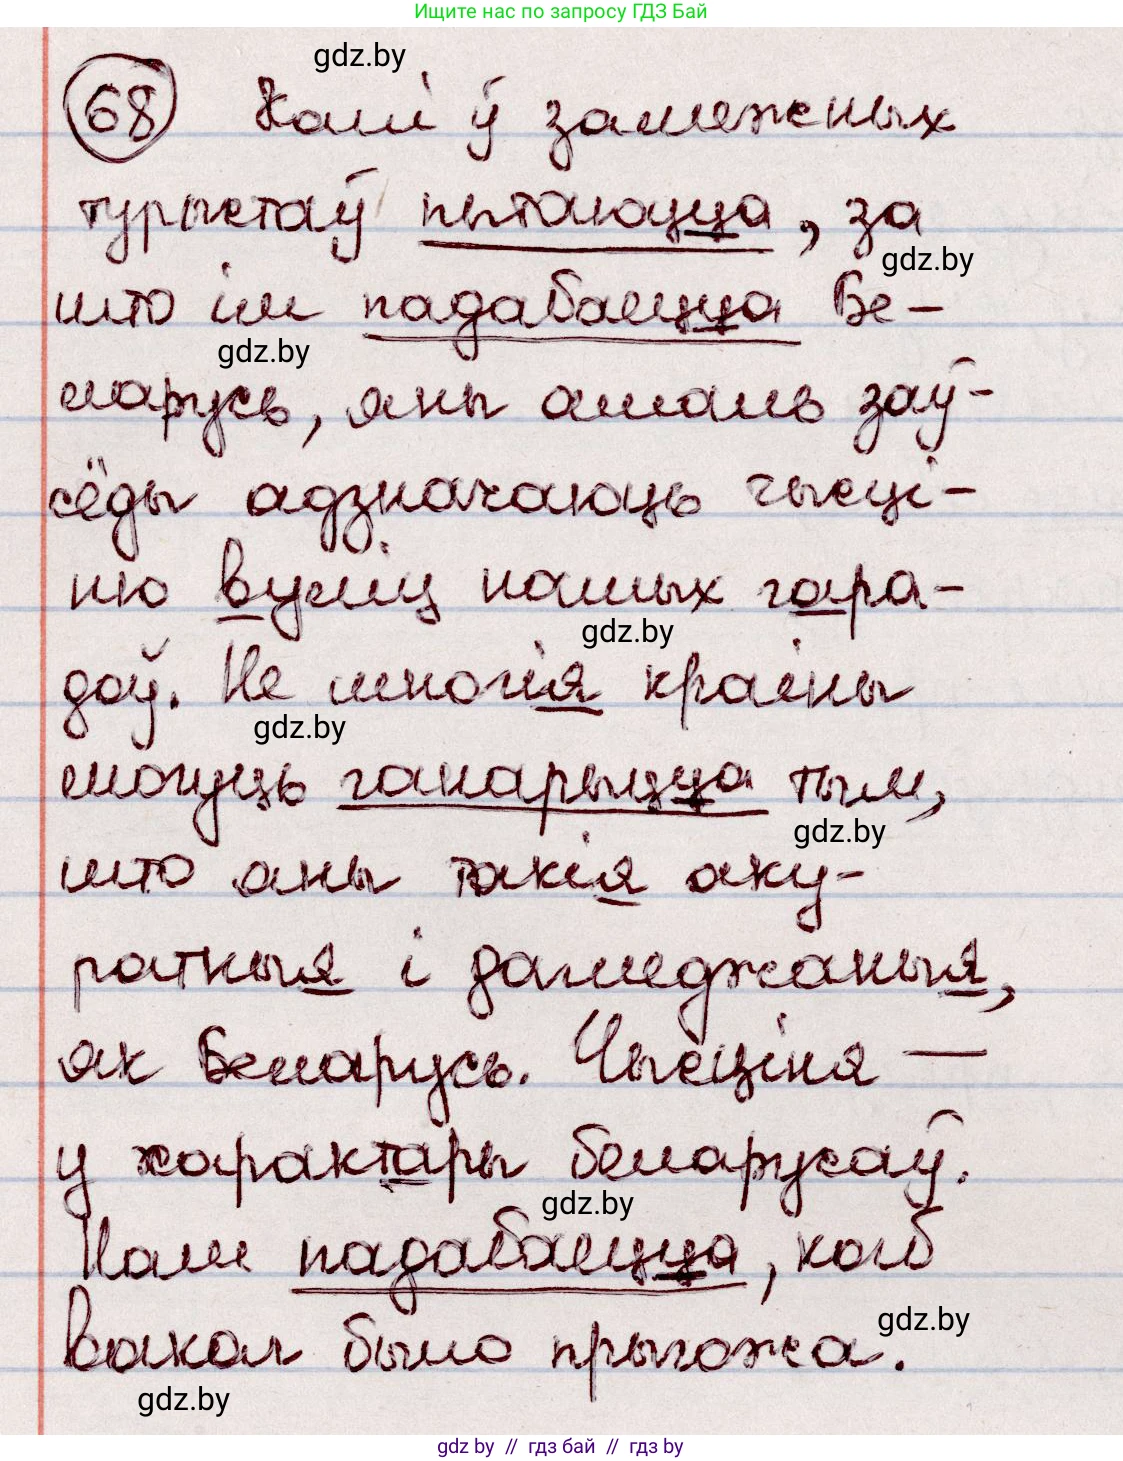 Ищите нас по запросу ГДЗ Бай
gdz.by
68 Калі ў замежных
турыстаў пытаюцца, за
gdz.by
што ім падабаецца Бе-
gdz.by
ларусь, яны амаль заў-
сёды адзначаюць чысці-
ню вуліц нашых гара-
gdz.by
доў. Не многія краіны
gdz.by
могуць ганарыцца тым,
gdz.by
што яны такія аку-
ратныя і дагледжаныя,
як Беларусь. Чысціня —
у характары беларусаў.
gdz.by
Нам падабаецца, каб
gdz.by
вакол было прыгожа.
gdz.by
gdz by // гдз бай // гdz by